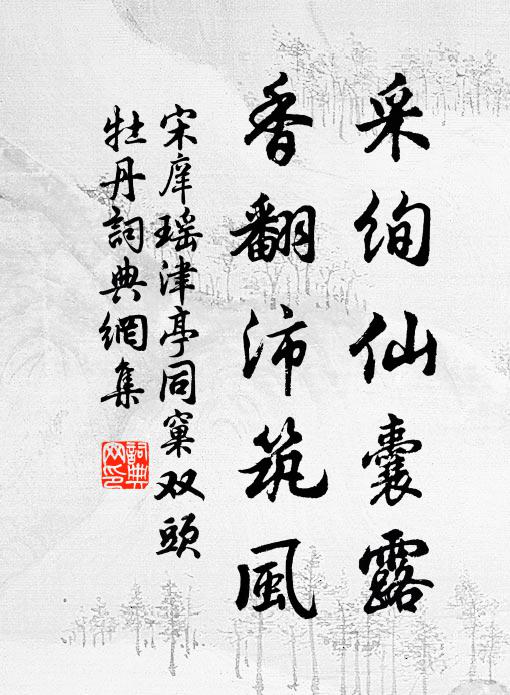 采绚仙囊露
香翻沛筑風
宋庠瑶津亭同窠双頭
牡丹詞典網集
詞典网印